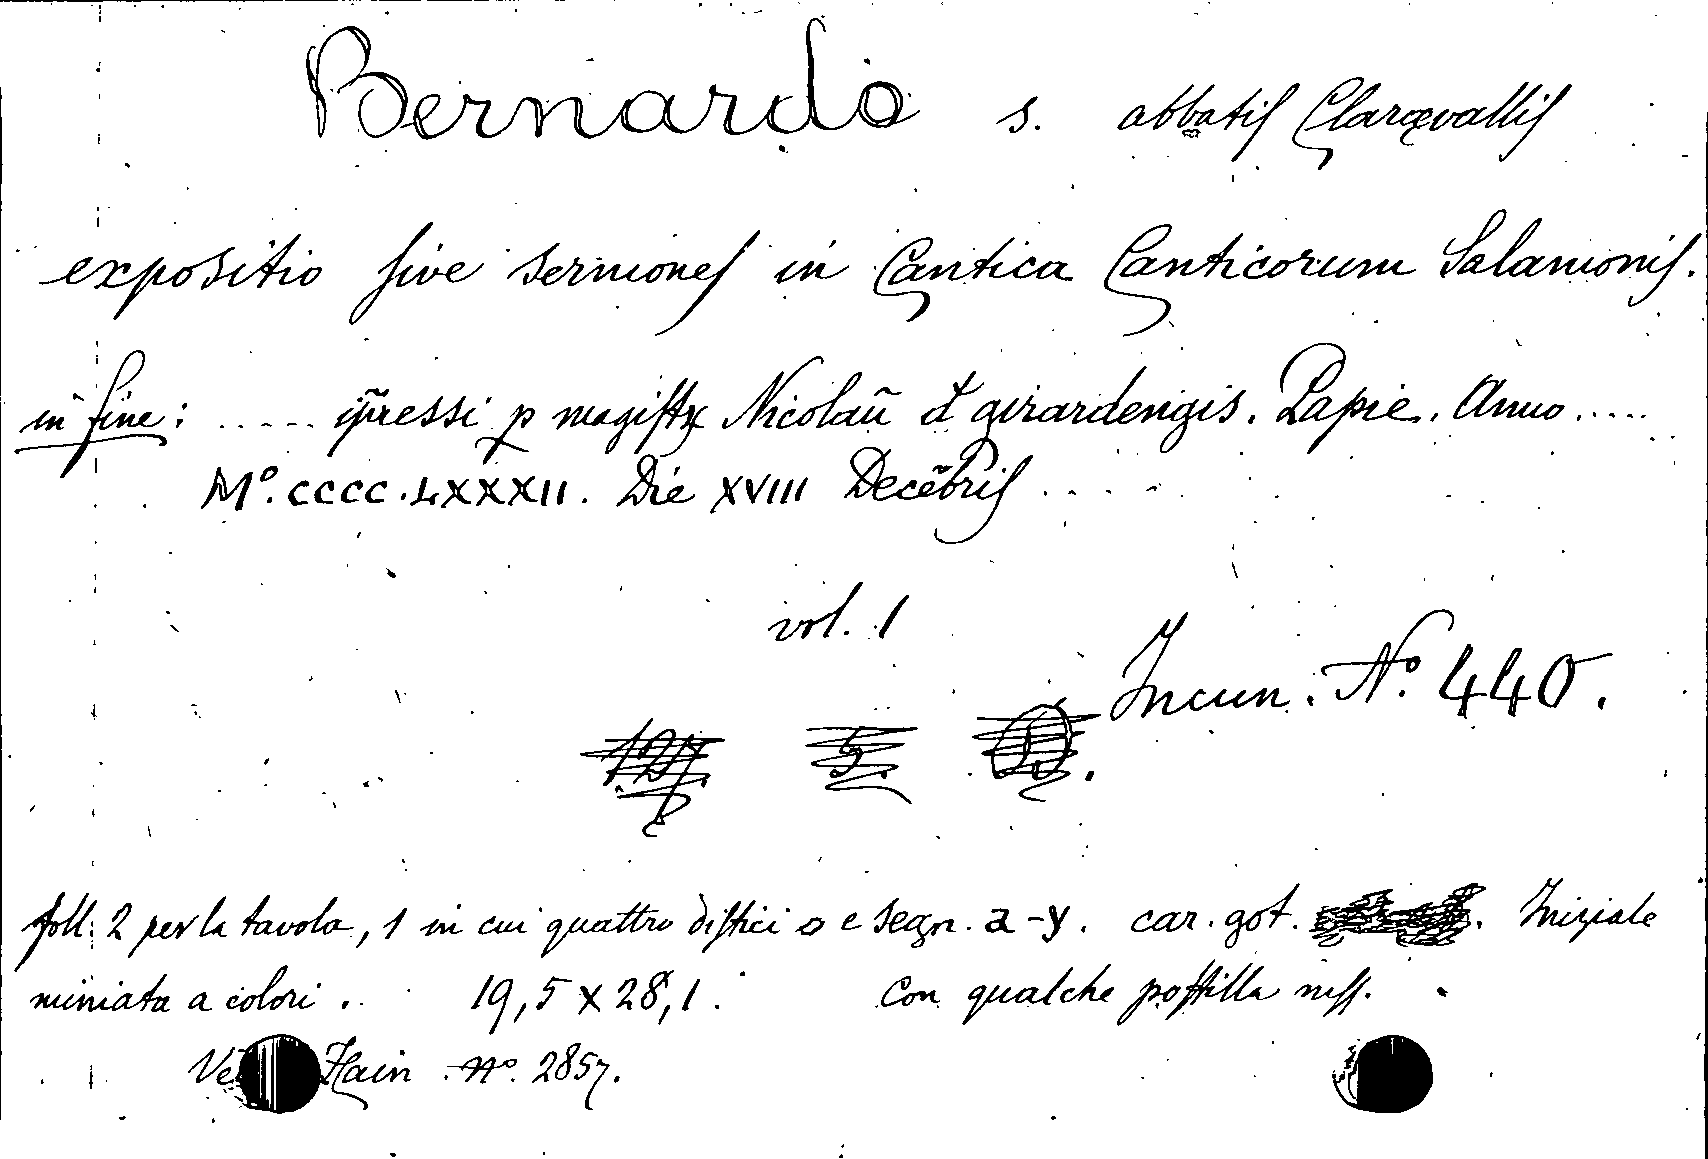 Bernardo s. abbatis Claraevallis
expositio sive sermones in Cantica Canticorum Salamonis.
in fine: ..... ip̃ressi p magistrx Nicolaũ đ girardengis. Papie. Anno .....
M°. CCCC. LXXXII. Die XVIII Decẽbris ....
vol. 1
Incun. N° 440.
foll. 2 per la tavola, 1 in cui quattro distici e segn. a-y. car. got. Iniziale
miniata a colori. 19,5 x 28,1. con qualche postilla mss.
Hain n°. 2857.